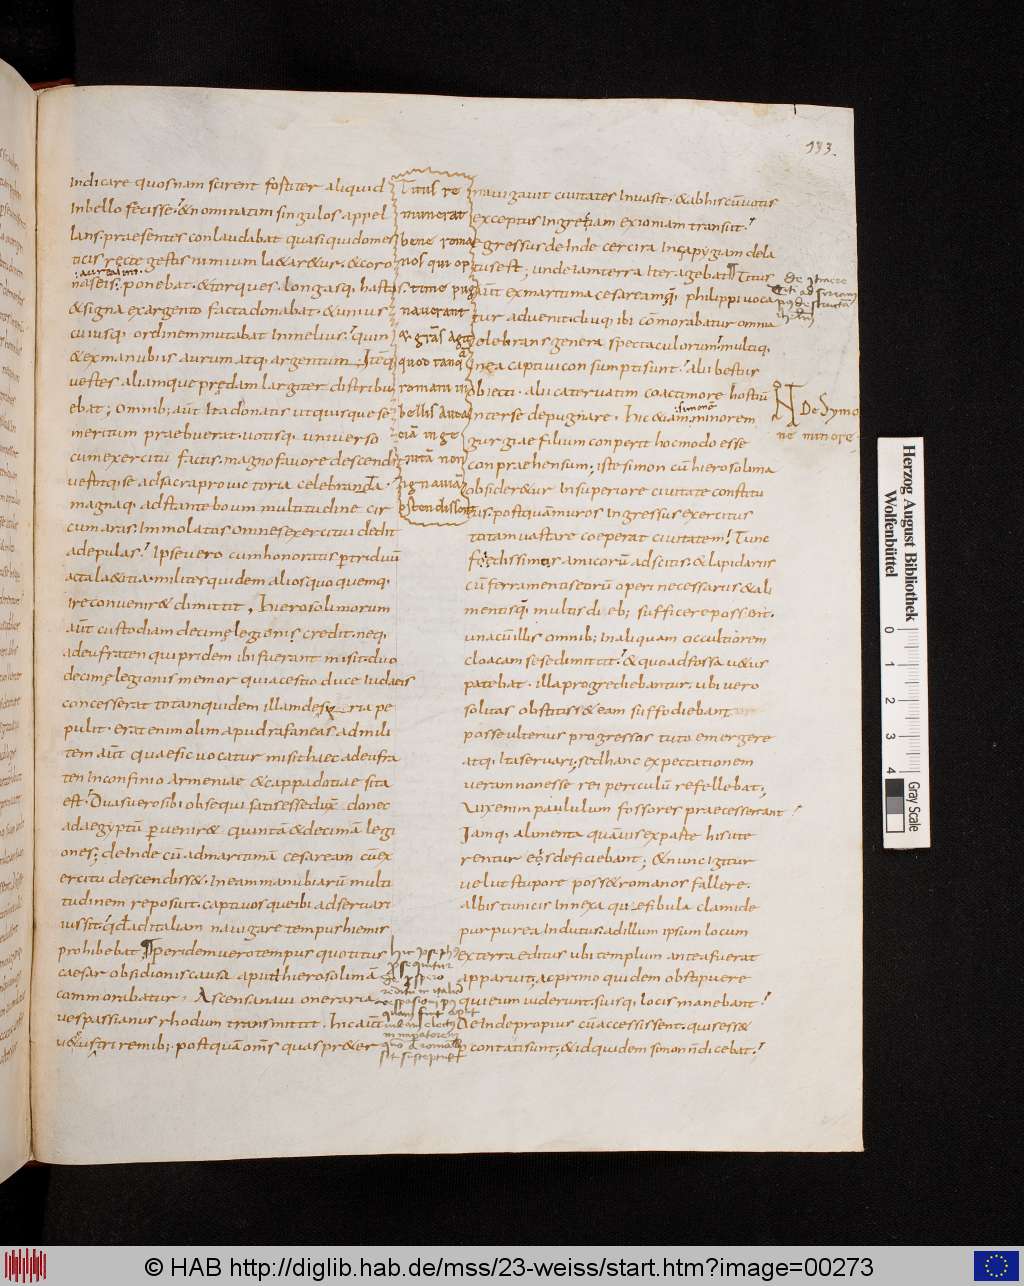 133.
Indicare quosnam scirent fortiter aliquid
Inbello fecisse. & nominatim singulos appel
lans. praesentes conlaudabat quasi quidomes
ticis recte gestis nimium la&ar&ur. & coro
aureas im
nas eis. ponebat. & torques. longasq. hastas.
& signa exargento facta donabat. & unius
cuiusq. ordinem mutabat Inmelius. quin
& exmanubiis aurum atq. argentum. Item
uestes aliamque predam largiter distribu
ebat; Omnib; aut Ita donatis utquisque se
meritum praebuerat. uotisq. uniuerso
cum exercitu factis. magno fauore descendit
uestitq se ad sacra pro uictoria celebranda.
magnaq. adstante boum multitudine cir
cum aras. Immolatos omnes exercitui dedit
adepulas. Ipse uero cum honoratis p triduu
acta la&itia. milites quidem alios quo quemq.
ire conuenir& dimittit. Hierosolimorum
aut custodiam decime legionis credit. neq.
ad eufraten qui pridem ibi fuerant misit. duo
decime legionis memor quia cestio duce Iudaeis
concesserat totam quidem illam de syria pe
pulit. erat enim olim apud rafaneas ad mili
tem aut quae sic uocatur misit haec ad eufra
ten Inconfinio Armeniae & cappadotiae sita
est. Duas uero sibi obsequi satis esse dux donec
ad aegyptu peruenir& quinta & decima legi
ones; deInde cu ad maritima cesaream cu ex
ercitu descendiss&. In eam manubiaru multi
tudinem reposuit. captiuos queibi adseruari
iussit. qd ad italiam nauigare tempus hiemis
prohibebat. Per idem uero tempus quo titus
caesar obsidionis causa aput hierosolima
commorabatur. Ascensa naui oneraria
uespassianus rhodum transmittit. Inc aut
uectus triremib; postqua oms quas pr&er
Titus re
munerat
bene roma
nos qui op
time pug
nauerant
& gras agit
quod tanq
romani in
bellis auda
cia in ge
nita non
ignauia
ostendissent
Hic iosephus
nauigauit ciuitates Inuasit. & abhis cu uotis
exceptus Ingretiam exioniam transiit.
egressus deInde cercira Inçapygiam dela
tus est; unde iam terra Iter agebat. Titus
aut ex maritima cesarea quq philippi uoca
tur aduenit. diuq. ibi comorabatur omnia
celebrans genera spectaculorum. multiq.
Inea captiui consumpti sunt. alii bestiis
obiecti. alii cateruatim coacti more hostiu
Interse depugnare. hic & iam minorem
simone
gurgiae filium conperit hoc modo esse
conpraehensum; iste simon cu hierosolima
obsider&ur In superiore ciuitate constitu
tus. postqua muros Ingressus exercitus
totam uastare coeperat ciuitatem. Tunc
fedissimis amicoru adscitis & lapidariis
cu ferramentis eoru operi necessariis & ali
mentisq. multis dieb; sufficere possent.
una cu illis omnib; In aliquam occultiorem
cloacam se se dimittit. & quoad fossa u&us
patebat. illa progrediebantur. ubi uero
solitas obstitiss& eam suffodiebant
posse ulterius progressos tuto emergere
atq. Ita seruari; sed hanc expectationem
ueram non esse rei periculu refellebat;
Vix enim paululum fossores praecesserant
Iamq. alimenta quauis ex parte his ute
rentur eos deficiebant; & nunc Igitur
uelut stupore poss& romanos fallere.
albis tunicis Innexa que fibula clamide
purpurea Indutus. ad illum ipsum locum
exterra editus ubi templum antea fuerat
apparuit; ac primo quidem obstipuere
qui eum uiderunt. suisq. locis manebant.
DeInde propius cu accessissent. quis ess&
pcontati sunt; & id quidem simon n dicebat.
N De Symo
ne minore
Herzog August Bibliothek
Wolfenbüttel
0 1 2 3 4
Gray Scale
© HAB http://diglib.hab.de/mss/23-weiss/start.htm?image=00273